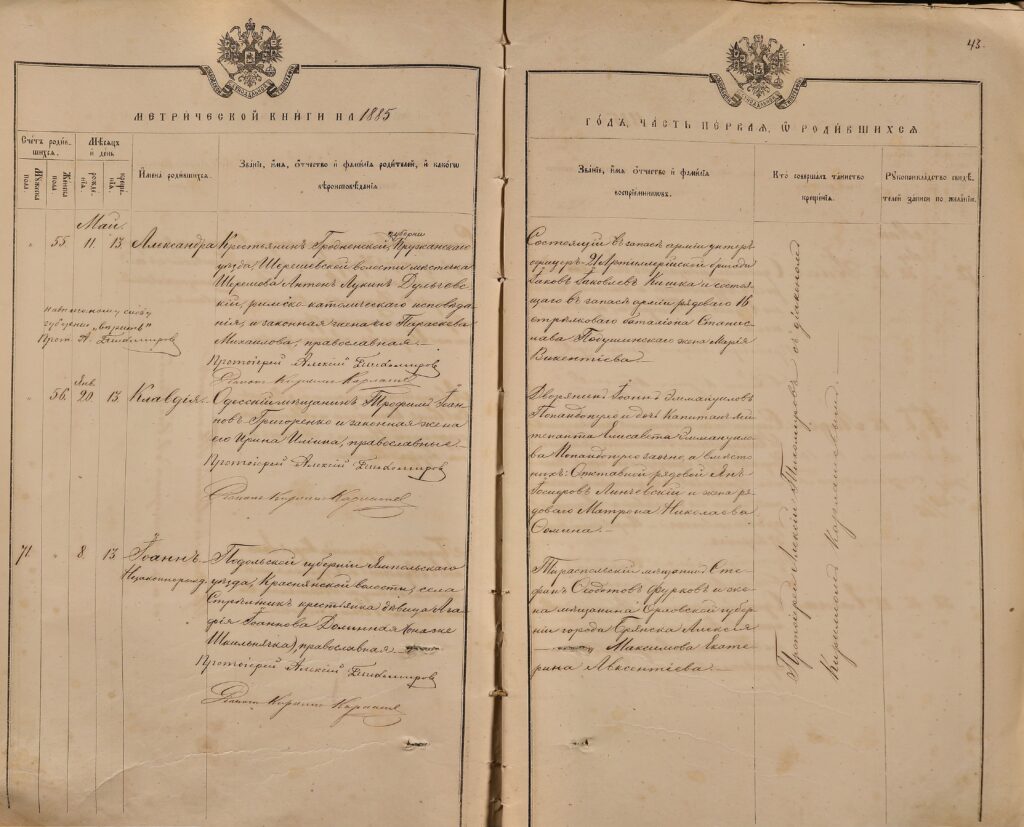 43.
МЕТРИЧЕСКОЙ КНИГИ НА 1885
ГОДЪ, ЧАСТЬ ПЕРВАЯ, Ѿ РОДИВШИХСЯ
Счетъ родившихся.
Мужеска пола.
Женска пола.
Мѣсяцъ и день
рожденія.
крещенія.
Имена родившихся.
Званіе, имя, отчество и фамилія родителей, и какого вѣроисповѣданія
Званіе, имя, отчество и фамилія воспріемниковъ.
Кто совершалъ таинство крещенія.
Рукоприкладство свидѣтелей записи по желанію.
Май
" 55 11. 13. Александра
Крестьянинъ Гродненской губерніи Пружанскаго
уѣзда, Шерешевской волости мѣстечка
Шерешова Антонъ Лукинъ Дульчев
скій, римско-католическаго исповѣда
нія, и законная жена его Параскева
Михаилова, православная.
Протоіерей Алексій
Состоящій въ запасѣ арміи унтеръ
офицеръ 21 Артиллерійской бригады
Іаковъ Іаковлевъ Кишка и состоя
щаго въ запасѣ арміи рядоваго 16
стрѣлковаго баталіона Станис
лава жена Марія
Викентіева
Прот. А.
Янв.
" 56. 20. 13 Клавдія.
Одесскій мѣщанинъ Трофимъ Іоан
новъ Григоренко и законная жена
его Ирина Ильина, православные.
Протоіерей Алексій
Дворянинъ Іоаннъ Эммануиловъ
и дочь Капитанъ-Лей
тенанта Елисавета Эммануило
ва заочно, а вмѣсто
нихъ: Отставной рядовой Янъ
Іосифовъ Линчевскій и жена ря
доваго Матрона Николаева
Сомина.
71. " 8. 13 Іоаннъ
Незаконнорожд.
Подольской губерніи Ямпольскаго
уѣзда, Краснянской волости, села
крестьянка дѣвица Ага
фія Іоаннова Долинная (она же
Шкильнячка), православная
Протоіерей Алексій
Тираспольскій мѣщанинъ Сте
фанъ Ѳедотовъ Фурковъ и же
на мѣщанина Орловской губер
ніи города Брянска Алексія
Максимова Екате
рина Авксентіева
Протоіерей Алексій съ діакономъ
Кирилломъ